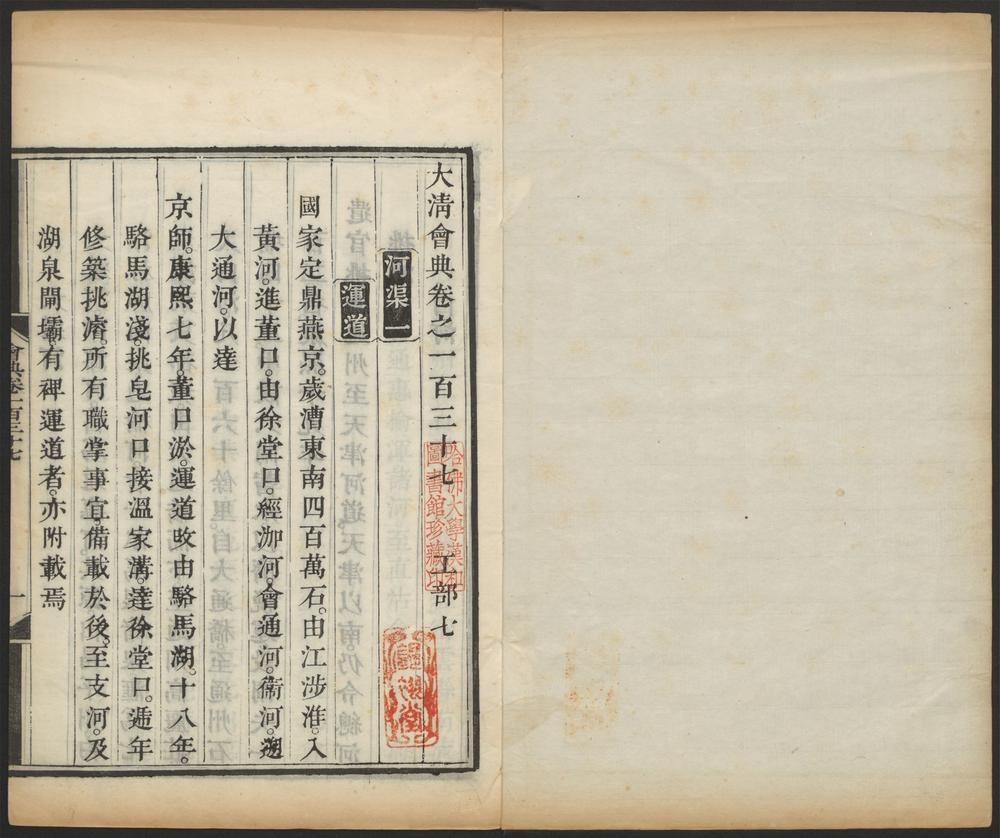 大淸會典卷之一百三十七 工部七
河渠一
運道
國家定鼎燕京。歲漕東南四百萬石。由江涉淮。入
黃河。進董口。由徐堂口。經泇河。會通河。衞河。遡
大通河。以達
京師。康熙七年。董口淤。運道攺由駱馬湖。十八年。
駱馬湖淺。挑皂河口接溫家溝。達徐堂口。遞年
修築挑濬。所有職掌事宜。備載於後。至支河。及
湖泉閘壩。有裨運道者。亦附載焉
會典卷一百三十七
一
哈佛大學漢和
圖書館珍藏印